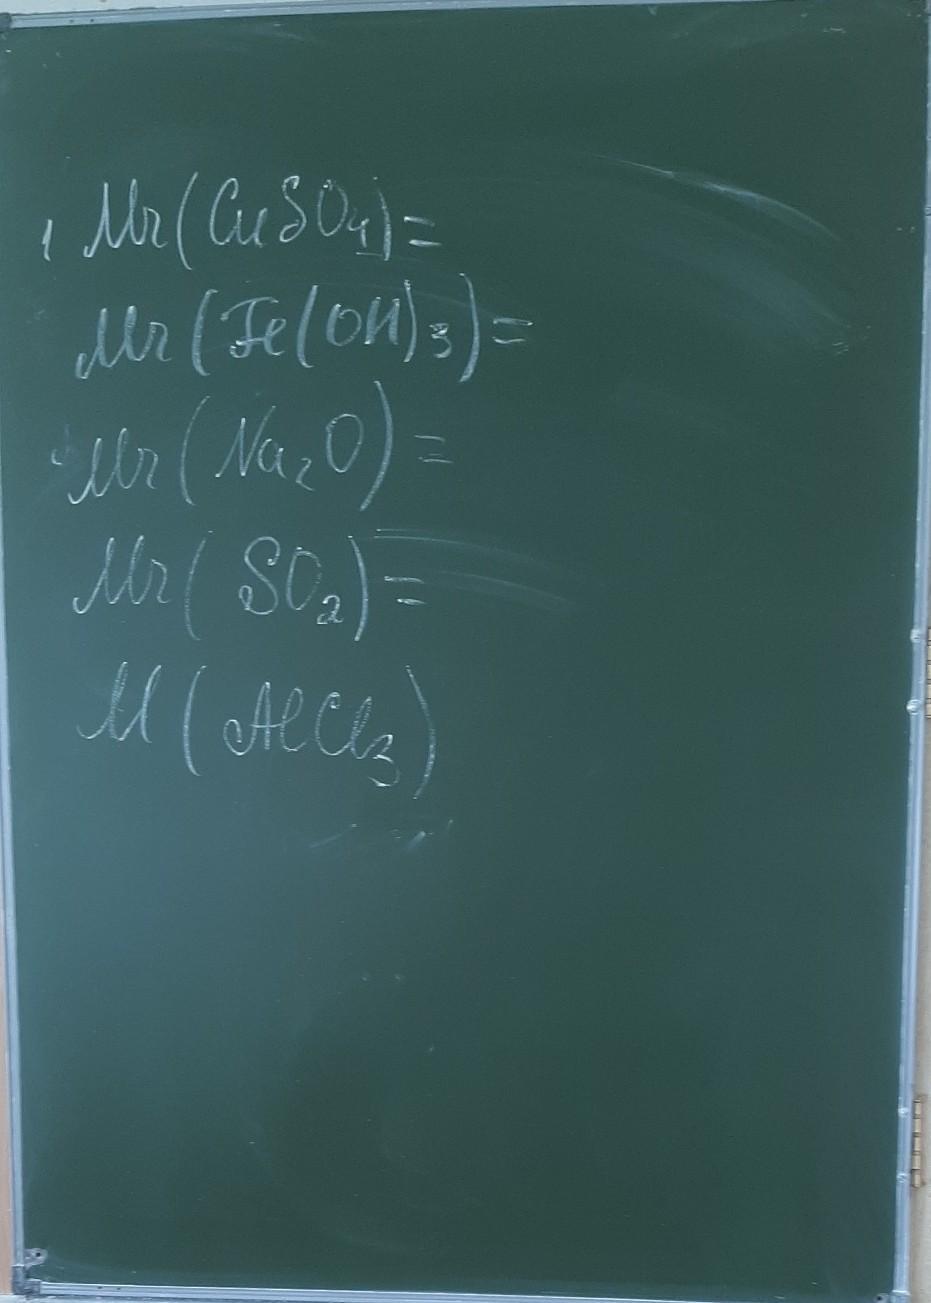 1 Mr(CuSO4)=
Mr(Fe(OH)3)=
Mr(Na2O)=
Mr(SO2)=
M(AlCl3)